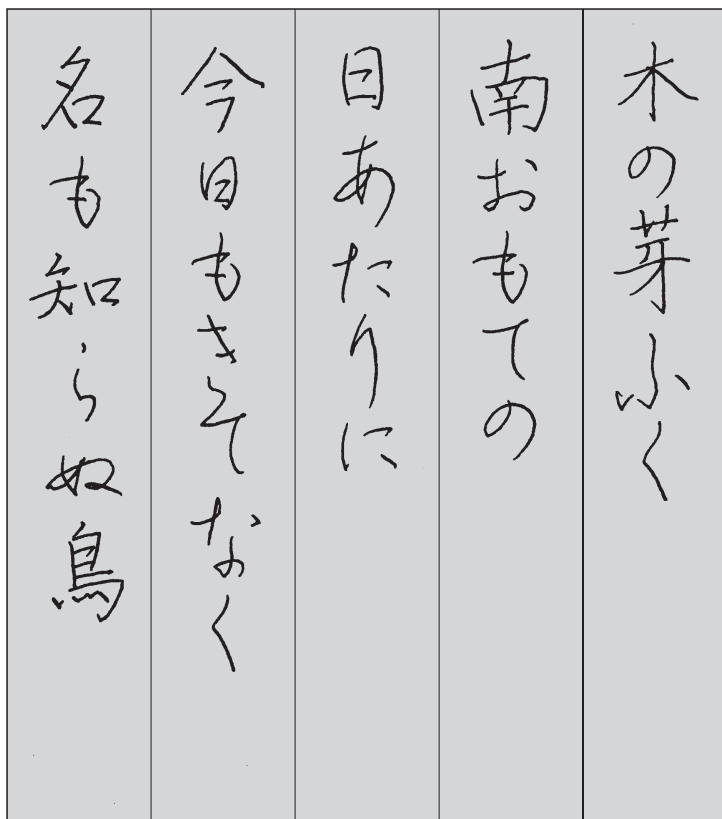 木の芽ふく
南おもての
日あたりに
今日もきてなく
名も知らぬ鳥